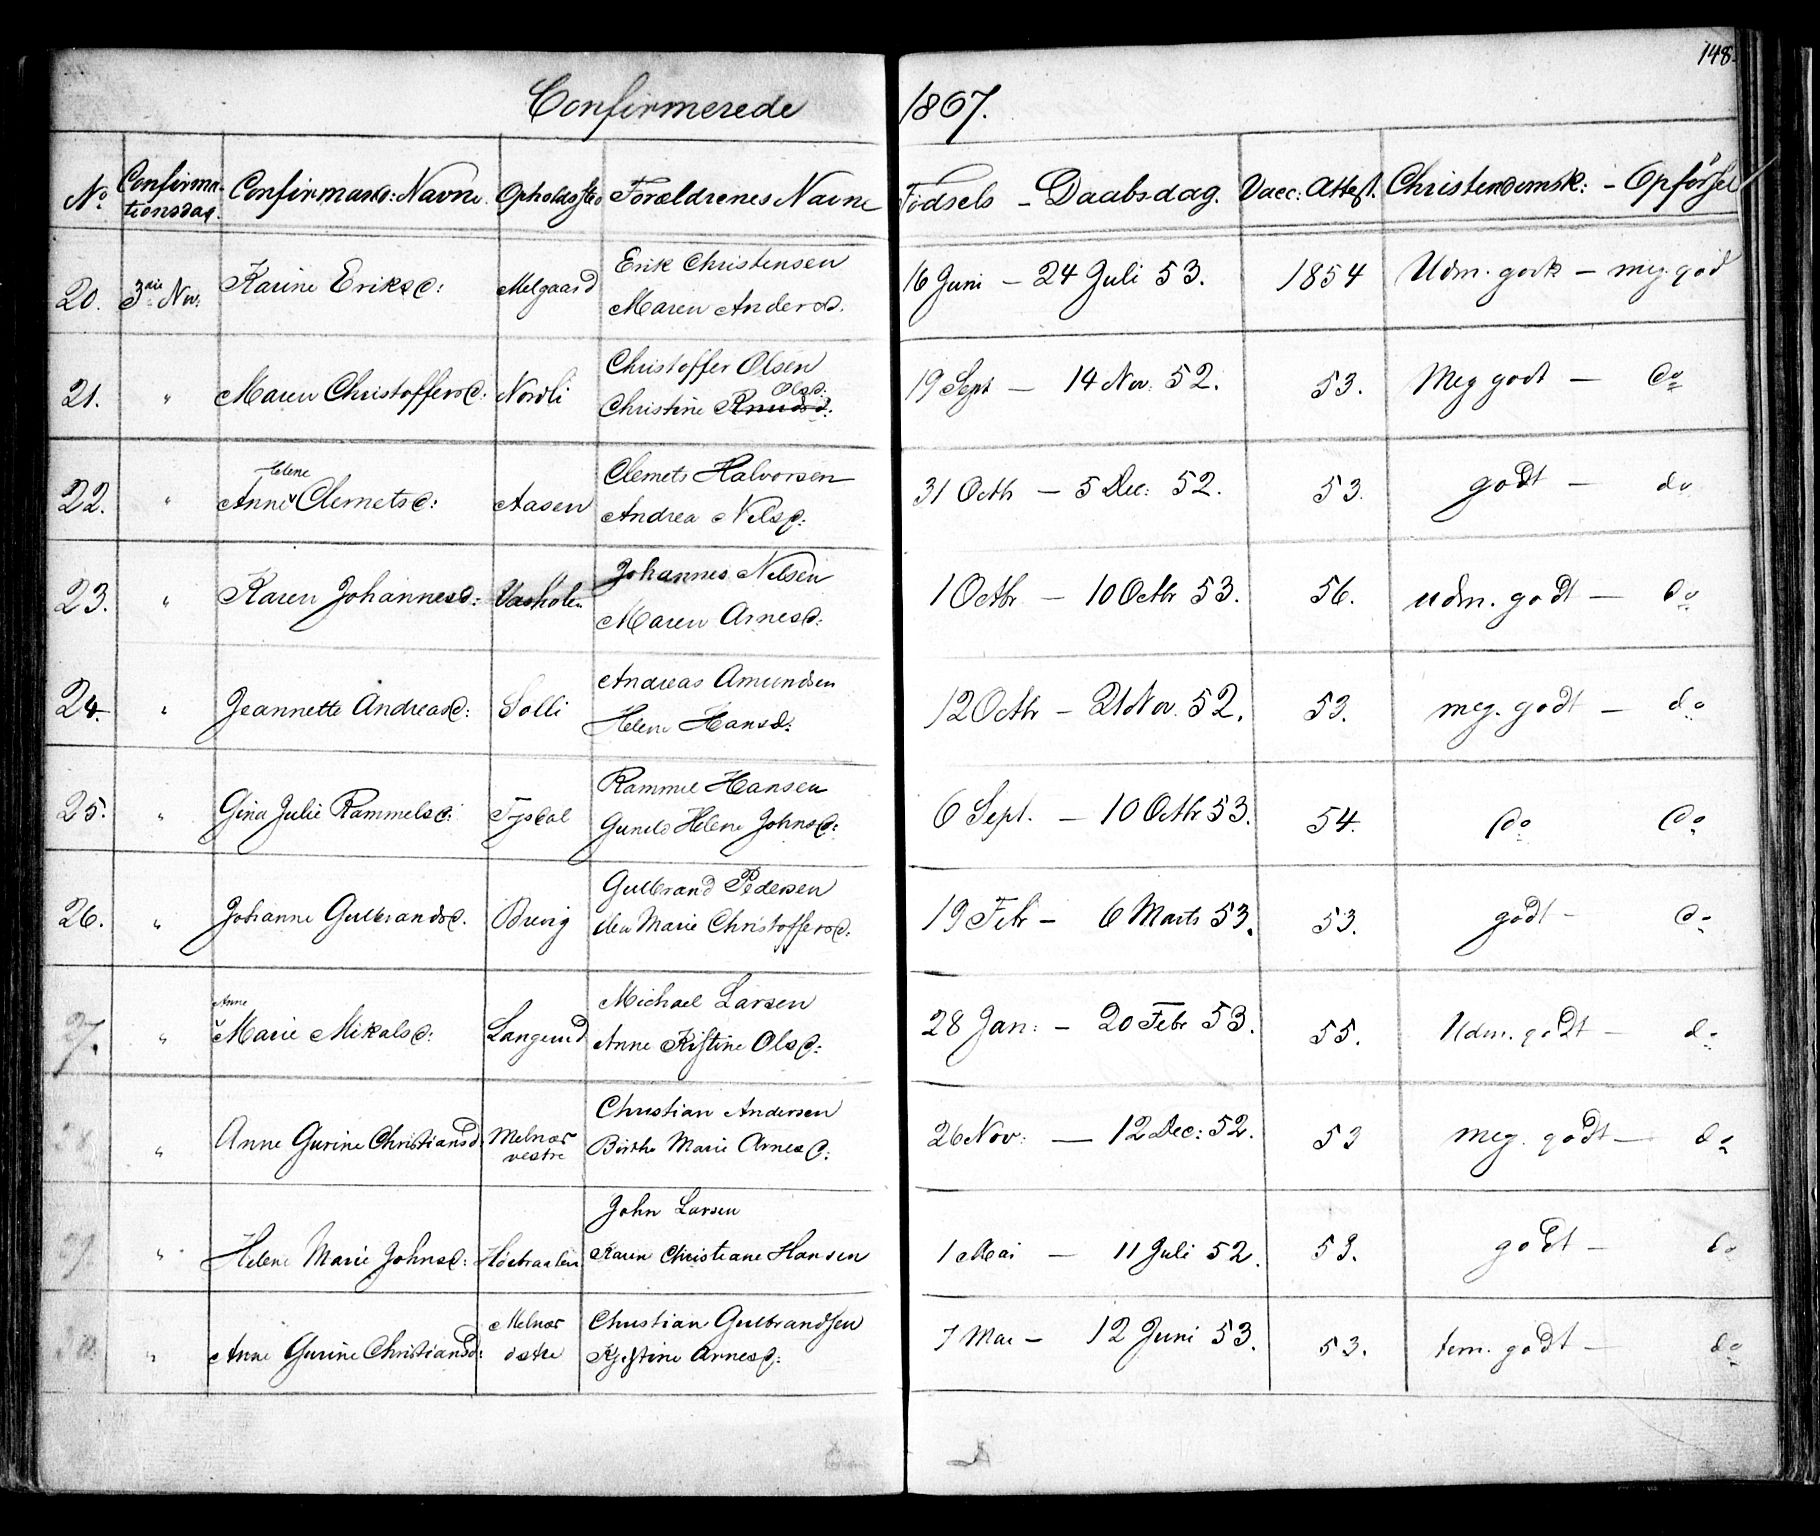 148.
Confirmerede 1867.
No Confirmationsdag. Confirmand: Navne. Opholdssted Forældrenes Navne Fødsels - Daabsdag. Vacc: Attest. Christendomsk: - Opførsel
Erik Christensen
20. 3die Nov. Karine Eriksd: Melgaard 16 Juni - 24 Juli 53. 1854 Udm. godt - meg. god
Maren Andersd.
Christoffer Olsen
21. " Maren Christoffersd: Nordli 19 Sept - 14 Nov. 52. 53. Meg godt - do
Olsd:
Christine Knudsd:
Helene
Clemets Halvorsen
22. " Anne Clemetsd: Aasen 31 Octbr - 5 Dec: 52. 53. godt - do
Andrea Nelsd:
Johannes Nelsen
23. " Karen Johannesd: 1 Octbr - 10 Octbr 53. 56. udm. godt - do
Maren Arnesd:
Andreas Amundsen
24. " Jeannette Andreasd: Solli 12 Octbr - 21 Nov. 52. 53. meg. godt - do
Helene Hansd:
Rammel Hansen
25. " Gina Julie Rammelsd: 6 Sept. - 10 Octbr 53. 54. do do
Gunild Helene Johnsd:
Gulbrand Pedersen
26. " Johanne Gulbrandsd. Brevig 19 Febr - 6 Marts 53. 53. godt - do
Marie Christoffersd:
Anne
Michael Larsen
27. " Marie Mikalsd: Langerud 28 Jan: - 20 Febr 53. 55. Udm. godt - do
Anne Kistine Olsd:
Christian Andersen
28 " Anne Gurine Christiansd: Melnær vestre 26 Nov: - 12 Dec: 52. 53 meg. godt - do
Birthe Marie Arnesd:
John Larsen
29 " Helene Marie Johnsd: Høibraaten 1 Mai - 11 Juli 52. 53. godt - do
Karen Christiane Hansen
Melnær
Christian Gulbrandsen
30. " Anne Gurine Christiansd: østre 7 Mai - 12 Juni 53. 53. tem. godt - do
Kjestine Arnesd: